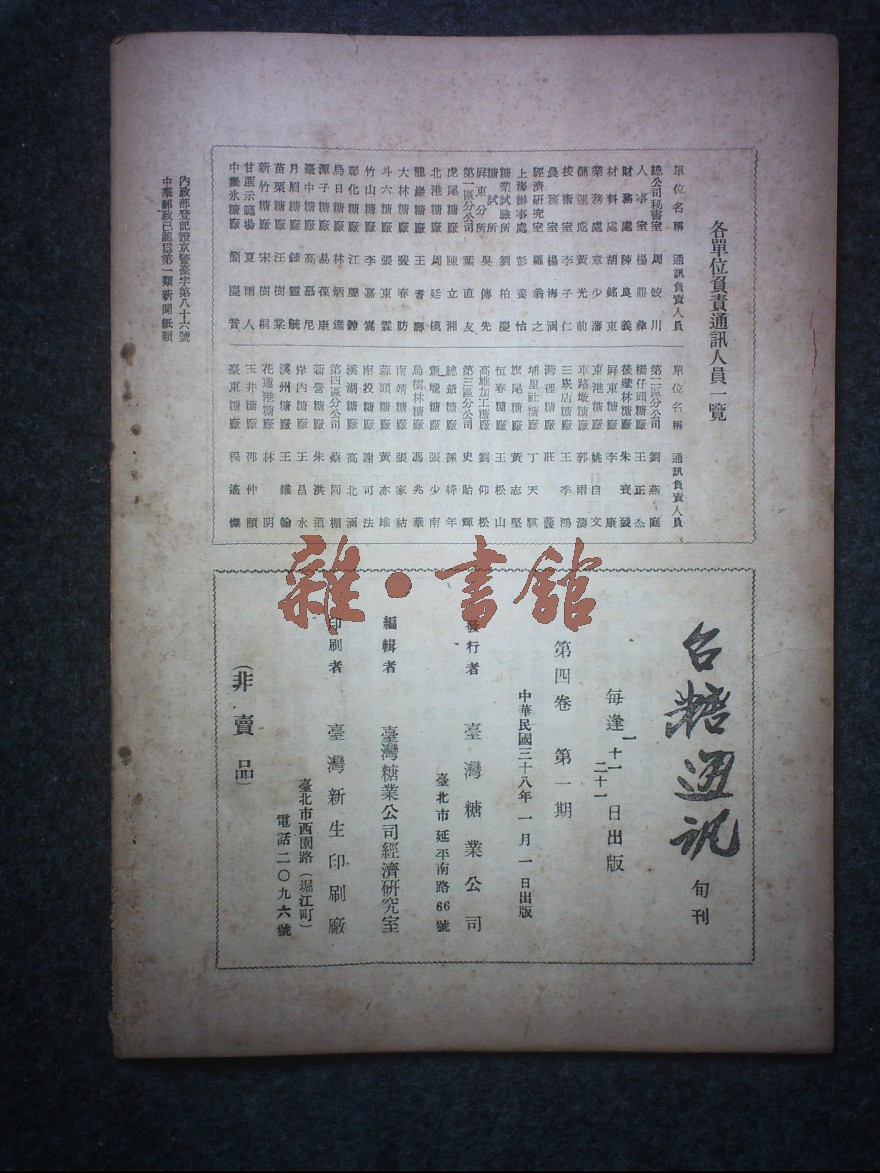 各單位負責通訊人員一覽
單位名稱 通訊負責人員
總公司秘書室 周蛟川
人事室 楊鼎彝
財務處 陳良義
材料處 胡銘東
業務處 章少濤
儲運處 黃光前
技術室 李子仁
農務室 楊海涵
經濟研究室 羅翕之
上海辦事處 彭養怡
糖業試驗所 劉柏慶
糖試所屏東分所 吳傳先
第一區分公司 葉直友
虎尾糖廠 陳立湘
北港糖廠 周廷
龍巖糖廠 王耆壽
大林糖廠 裴春昉
斗六糖廠 張東霖
竹山糖廠 李嘉嵩
彰化糖廠 江
烏日糖廠 林炳
潭子糖廠 易葆康
臺中糖廠 高慕尼
月眉糖廠 鍾靈毓
苗栗糖廠 汪樹棠
新竹糖廠 宋樹桐
甘蔗示範場 夏雨人
中糖廠 簡慶
單位名稱 通訊負責人員
第二區分公司 劉燕庭
橋仔頭糖廠 王正杰
後壁林糖廠 朱
屏東糖廠 李康
東港糖廠 姚自文
車路墘糖廠 郭雨濤
三崁店糖廠 王季鴻
灣裡糖廠 莊
埔里社糖廠 丁天騏
旗尾糖廠 黃志堅
恒春糖廠 王松山
高雄加工糖廠 劉仰松
第三區分公司 史貽輝
總爺糖廠 孫梓年
蕭壠糖廠 張少南
烏樹林糖廠 馮兆華
南靖糖廠 張家祜
蒜頭糖廠 黃亦雄
南投糖廠 謝可法
溪湖糖廠 高北涵
第四區分公司 蔡同楣
新營糖廠 朱洪道
岸內糖廠 王昌水
溪州糖廠 王維翰
花蓮港糖廠 林明
玉井糖廠 邵仲頤
臺東糖廠 程遙
內政部登記證京警臺字第八十六號
中華郵政已認為第一類新聞紙類
台糖通訊 旬刊
每逢一 十一 二十一日出版
第四卷 第一期
中華民國三十八年一月一日出版
發行者 臺灣糖業公司
臺北市延平南路66號
編輯者 臺灣糖業公司經濟研究室
印刷者 臺灣新生印刷廠
臺北市西園路（堀江町）
電話二〇九六號
（非賣品）
雜·書館